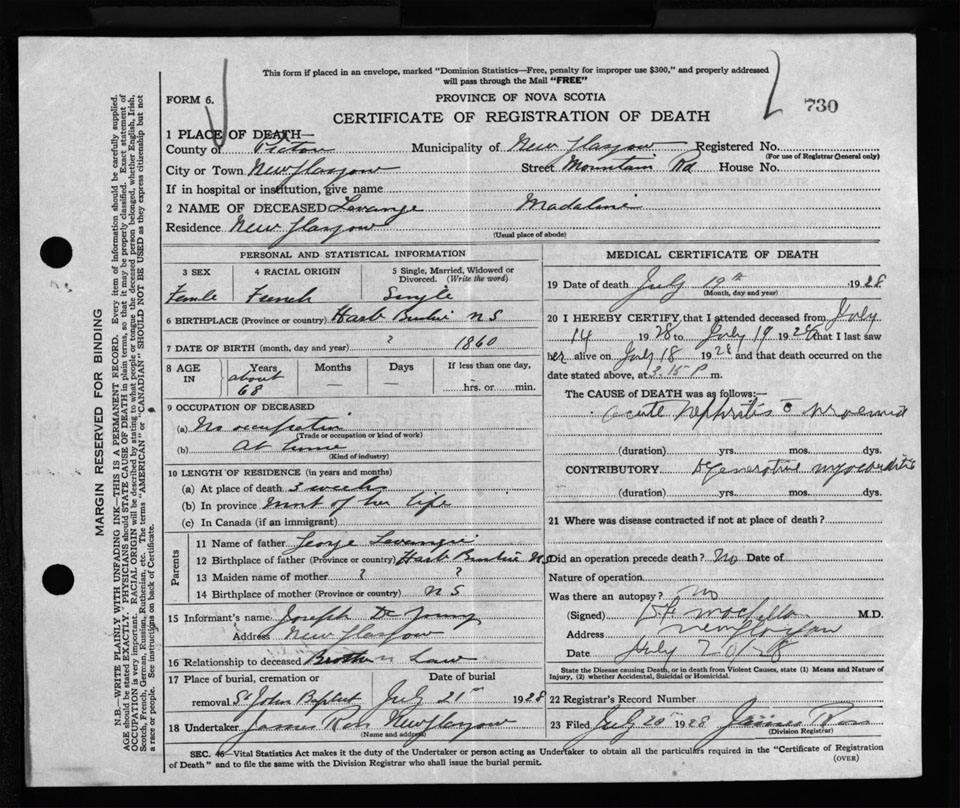 This form if placed in an envelope, marked "Dominion Statistics—Free, penalty for improper use $300," and properly addressed
will pass through the Mail "FREE"
FORM 6.
PROVINCE OF NOVA SCOTIA
730
CERTIFICATE OF REGISTRATION OF DEATH
1 PLACE OF DEATH—
County of Pictou Municipality of New Glasgow Registered No.
(For use of Registrar General only)
City or Town New Glasgow Street Mountain Rd House No.
If in hospital or institution, give name
2 NAME OF DECEASED Levange Madaline
Residence New Glasgow
(Usual place of abode)
PERSONAL AND STATISTICAL INFORMATION
3 SEX 4 RACIAL ORIGIN 5 Single, Married, Widowed or
Divorced. (Write the word)
Femle French Single
6 BIRTHPLACE (Province or country) Harb Bushie N S
7 DATE OF BIRTH (month, day and year) ? 1860
8 AGE IN Years Months Days If less than one day,
about 68 — — hrs. or min.
9 OCCUPATION OF DECEASED
(a) No occupation
(Trade or occupation or kind of work)
(b) at home
(Kind of industry)
10 LENGTH OF RESIDENCE (in years and months)
(a) At place of death 3 weeks
(b) In province most of her life
(c) In Canada (if an immigrant)
Parents
11 Name of father George Levangie
12 Birthplace of father (Province or country) Harb Bushie N S
13 Maiden name of mother ? ?
14 Birthplace of mother (Province or country) N S
15 Informant's name Joseph De Young
Address New Glasgow
16 Relationship to deceased Brother n Law
17 Place of burial, cremation or Date of burial
removal St John Baptist July 21st 1928
18 Undertaker James Ross New Glasgow
(Name and address)
MEDICAL CERTIFICATE OF DEATH
19 Date of death July 19th 1928
(Month, day and year)
20 I HEREBY CERTIFY, that I attended deceased from July
14 1928 to July 19 1928 that I last saw
her alive on July 18 1928 and that death occurred on
date stated above, at 3.15 P m.
The CAUSE OF DEATH was as follows:—
acute nephritis
(duration) yrs. mos. dys.
CONTRIBUTORY Degenerative myocarditis
(duration) yrs. mos. dys.
21 Where was disease contracted if not at place of death?
Did an operation precede death? No Date of
Nature of operation
Was there an autopsy? No
(Signed) M.D.
Address New Glasgow
Date July 20/28
State the Disease causing Death, or in death from Violent Causes, state (1) Means and Nature of
Injury, (2) whether Accidental, Suicidal or Homicidal.
22 Registrar's Record Number
23 Filed July 20th 1928 James Ross
(Division Registrar)
SEC. 46—Vital Statistics Act makes it the duty of the Undertaker or person acting as Undertaker to obtain all the particulars required in the "Certificate of Registration
of Death" and to file the same with the Division Registrar who shall issue the burial permit.
(OVER)
MARGIN RESERVED FOR BINDING
N.B.—WRITE PLAINLY WITH UNFADING INK—THIS IS A PERMANENT RECORD. Every item of information should be carefully supplied.
AGE should be stated EXACTLY. PHYSICIANS should STATE CAUSE OF DEATH in plain terms, so that it may be properly classified. Exact statement of
OCCUPATION is very important. RACIAL ORIGIN will be described by stating to what people or tongue the deceased person belonged, whether English, Irish,
Scotch, French, German, Russian, Ruthenian, etc. The terms "AMERICAN" or "CANADIAN" SHOULD NOT BE USED as they express citizenship but not
a race or people. See instructions on back of Certificate.